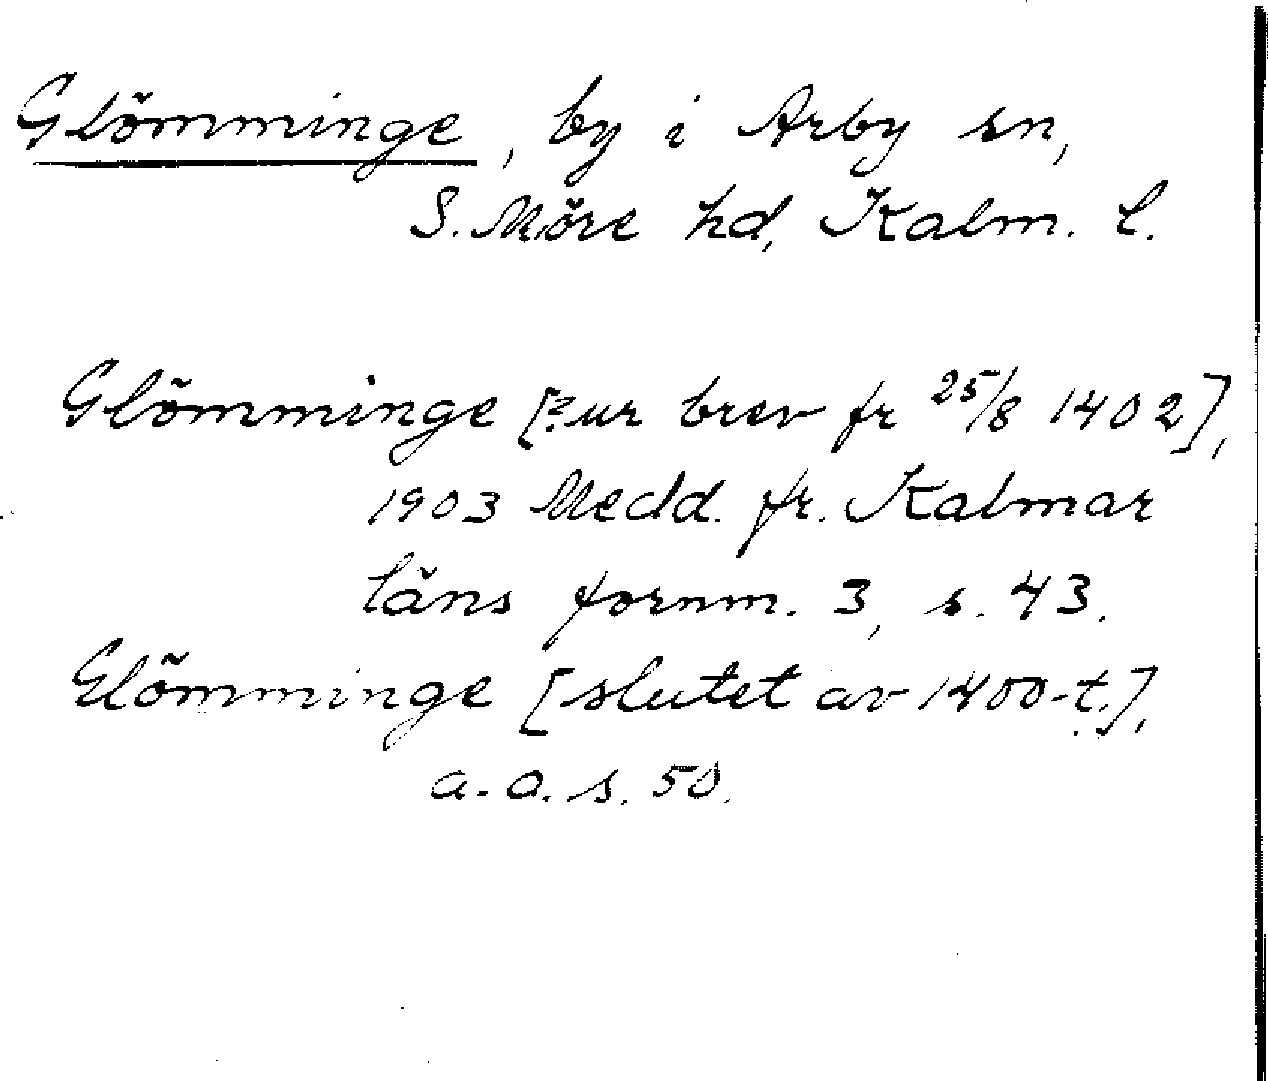 Glömminge, by i Arby sn,
S. Möre hd, Kalm. l.
Glömminge [?: ur brev fr 25/8 1402],
1903 Medd. fr. Kalmar
läns fornm. 3, s. 43.
Glömminge [slutet av 1400-t.],
a. a. s. 50.